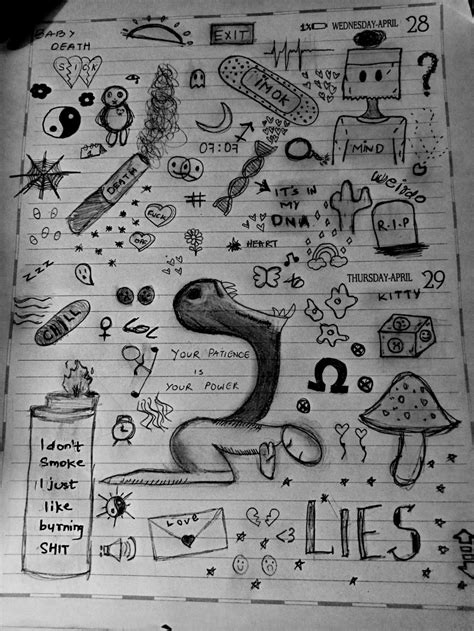 WEDNESDAY-APRIL 28
BABY
DEATH
EXIT
SICK
I'm OK
?
MIND
07:07
DEATH
#
IT'S IN
MY
DNA
weirdo
FUCK
R.I.P
HEART
THURSDAY-APRIL 29
zzz
KITTY
CHILL
LOL
YOUR PATIENCE
IS
YOUR POWER
Ω
I don't
Smoke
I just
like
burning
SHIT
LOVE
<3
LIES